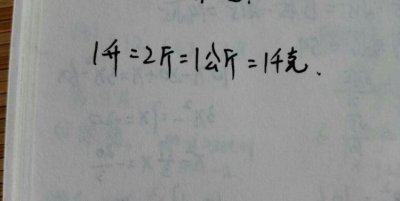 1升=2斤=1公斤=1千克.